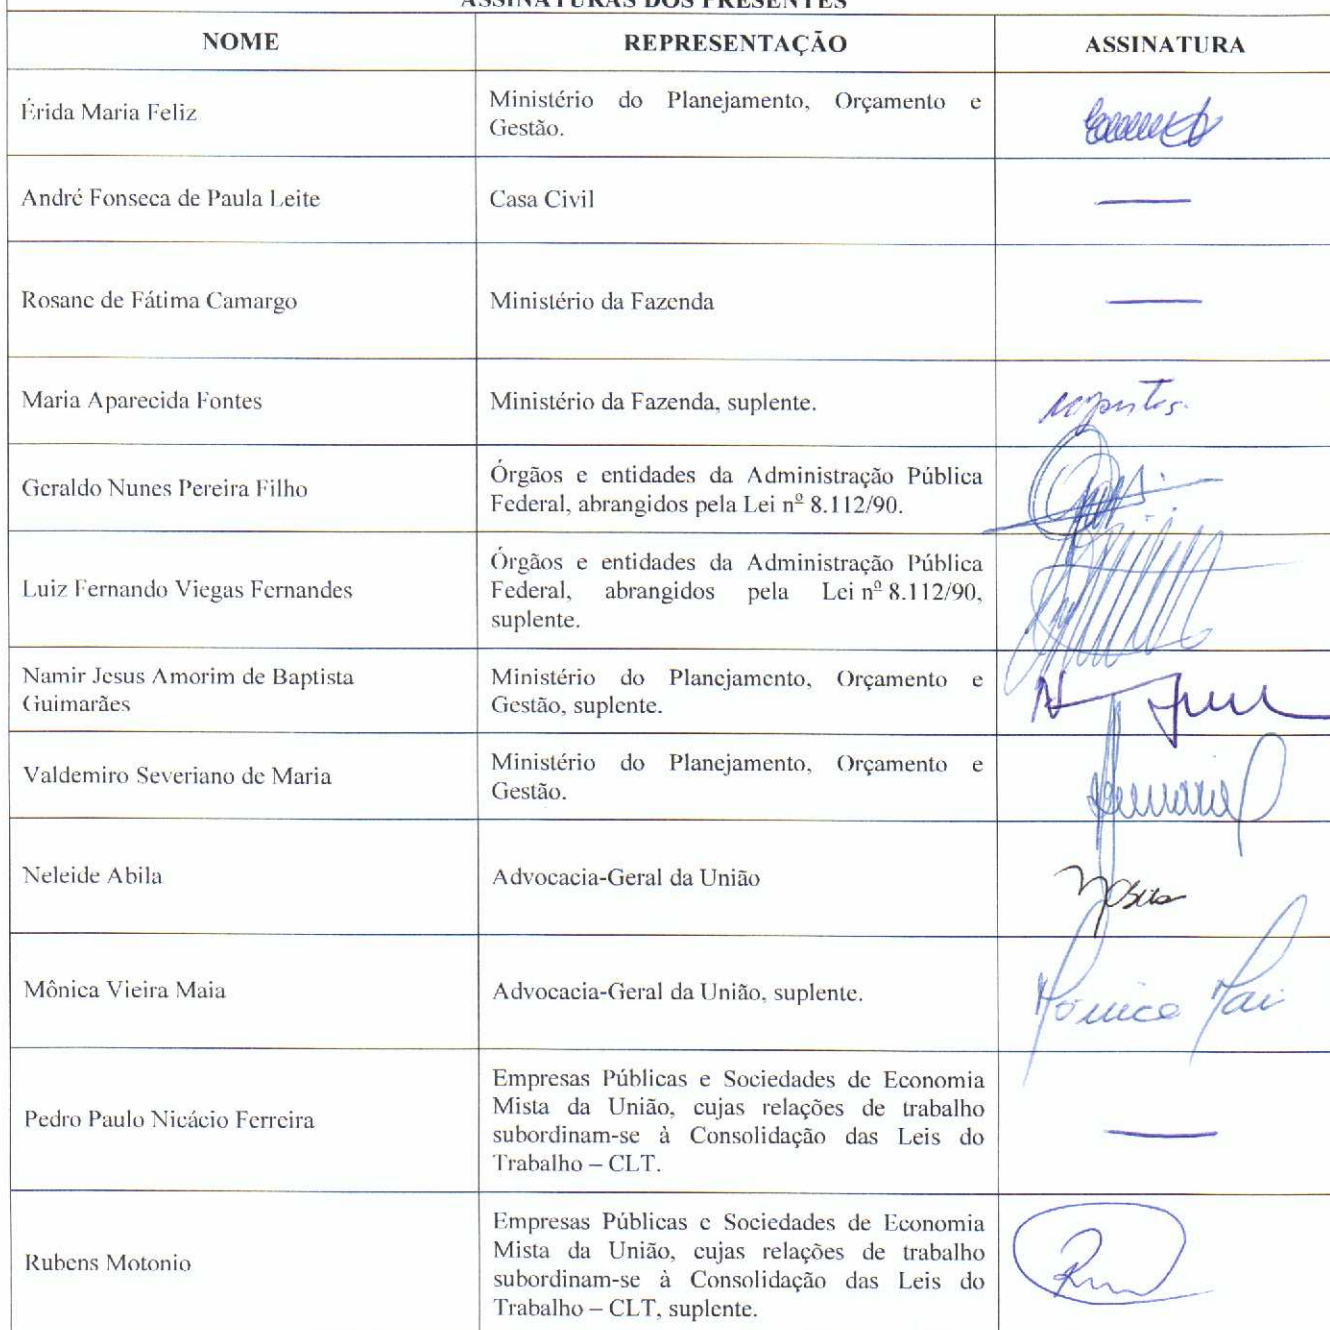 ASSINATURAS DOS PRESENTES
NOME REPRESENTAÇÃO ASSINATURA
Érida Maria Feliz
Ministério do Planejamento, Orçamento e
Gestão.
André Fonseca de Paula Leite
Casa Civil
Rosane de Fátima Camargo
Ministério da Fazenda
Maria Aparecida Fontes
Ministério da Fazenda, suplente.
Geraldo Nunes Pereira Filho
Órgãos e entidades da Administração Pública
Federal, abrangidos pela Lei nº 8.112/90.
Luiz Fernando Viegas Fernandes
Órgãos e entidades da Administração Pública
Federal, abrangidos pela Lei nº 8.112/90,
suplente.
Namir Jesus Amorim de Baptista
Guimarães
Ministério do Planejamento, Orçamento e
Gestão, suplente.
Valdemiro Severiano de Maria
Ministério do Planejamento, Orçamento e
Gestão.
Neleide Abila
Advocacia-Geral da União
Mônica Vieira Maia
Advocacia-Geral da União, suplente.
Mônica Mai
Pedro Paulo Nicácio Ferreira
Empresas Públicas e Sociedades de Economia
Mista da União, cujas relações de trabalho
subordinam-se à Consolidação das Leis do
Trabalho – CLT.
Rubens Motonio
Empresas Públicas e Sociedades de Economia
Mista da União, cujas relações de trabalho
subordinam-se à Consolidação das Leis do
Trabalho – CLT, suplente.